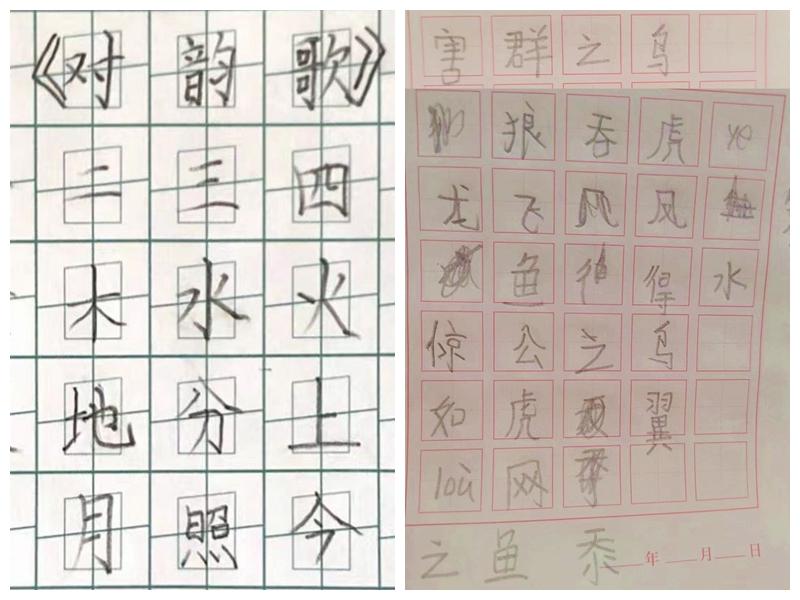 《对韵歌》
二三四
木水火
地分上
月照今
害群之鸟
狼吞虎 ye
龙飞风风
鱼得水
惊公之鸟
如虎翼
lòu 网
之鱼 忝
年 月 日